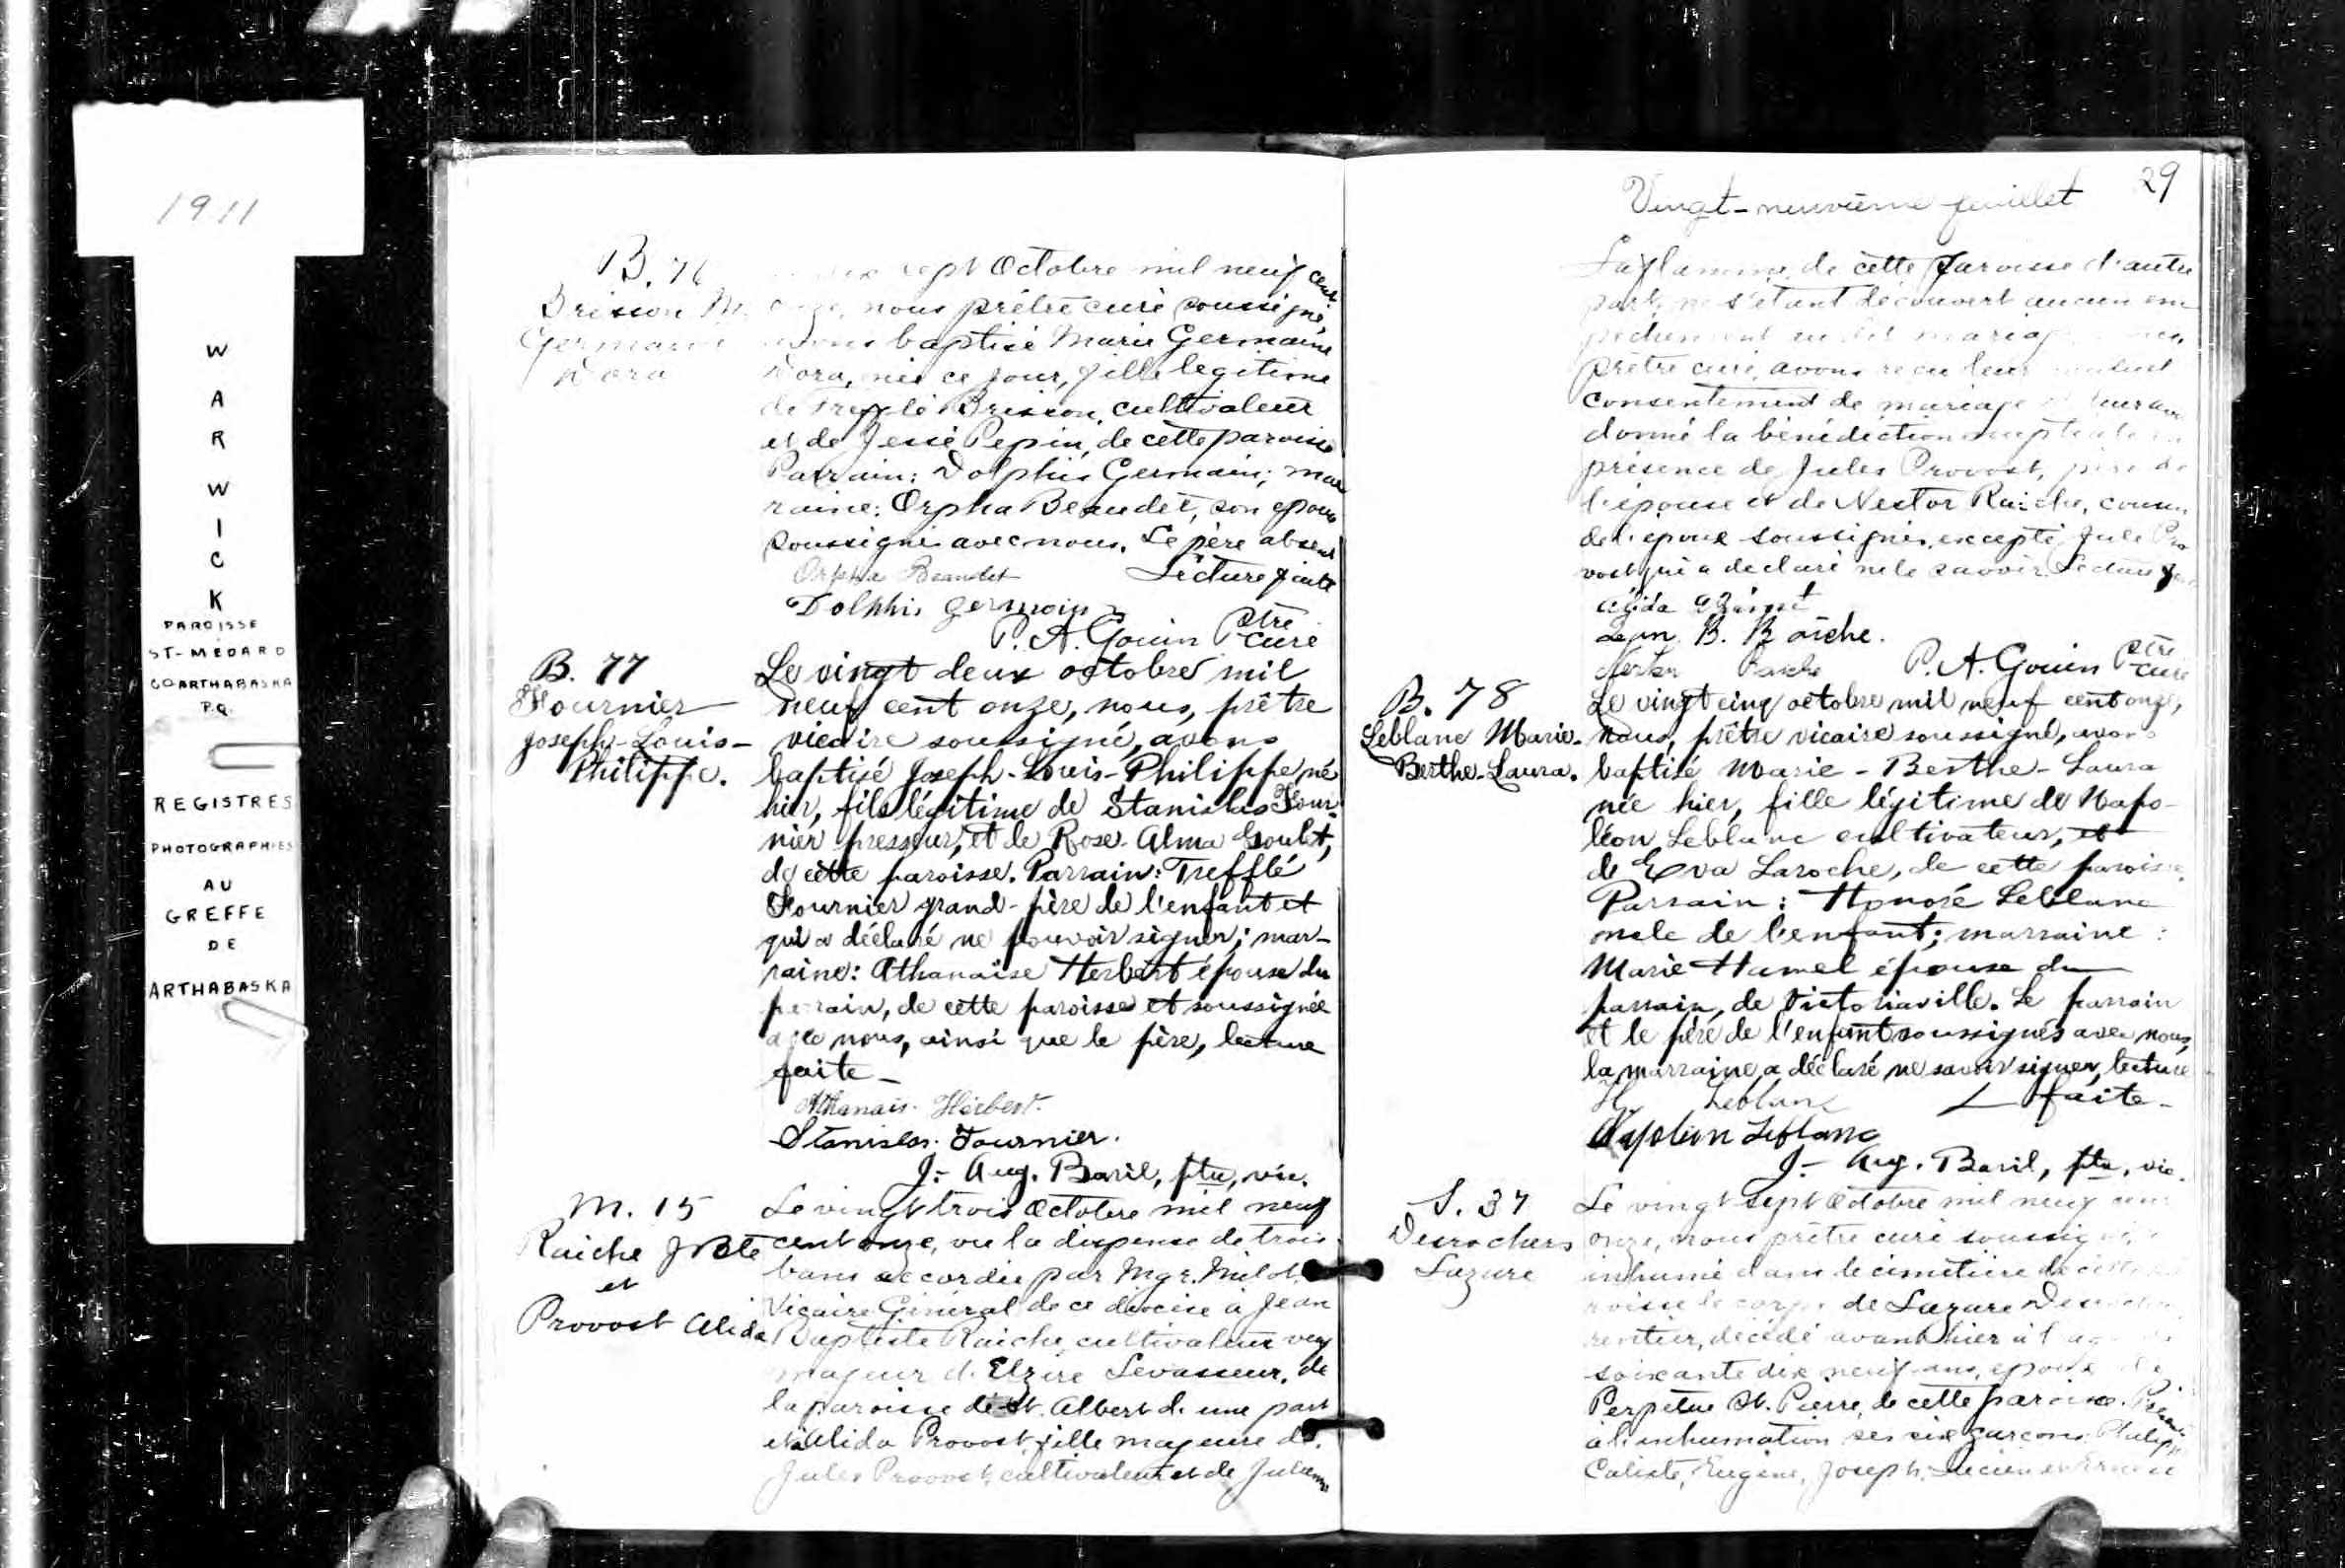 1911
W
A
R
W
I
C
K
PAROISSE
ST-MÉDARD
CO ARTHABASKA
P.Q.
REGISTRES
PHOTOGRAPHIES
AU
GREFFE
DE
ARTHABASKA
B. 76
Brisson M.
Germaine
Dora
sept Octobre mil neuf cent
onze, nous prêtre curé soussigné,
avons baptisé Marie Germaine
Dora, née ce jour, fille legitime
de Trefflé Brisson, cultivateur
et de Jessé Pepin, de cette paroisse
Parrain: Dolphis Germain; mar
raine: Orpha Beaudet, son epouse
soussignés avec nous. Le père absent
Orpha Beaudet Lecture faite
Dolphis Germain
P. A. Gouin Ptre
curé
B. 77
Fournier
Joseph-Louis-
Philippe.
Le vingt deux octobre mil
neuf cent onze, nous, prêtre
vicaire soussigné, avons
baptisé Joseph-Louis-Philippe né
hier, fils légitime de Stanislas Four-
nier presseur, et de Rose-Alma Goulet,
de cette paroisse. Parrain: Trefflé
Fournier grand-père de l'enfant et
qui a déclaré ne pouvoir signer; mar-
raine: Athanaïse Herbert épouse du
parrain, de cette paroisse et soussignée
avec nous, ainsi que le père, lecture
faite-
Athanais. Hérbert.
Stanislas. Fournier.
J.- Aug. Baril, ptre, vic.
M. 15
Raiche J Bte
et
Provost Alida
Le vingt trois Octobre mil neuf
cent onze, vu la dispense de trois
bans accordée par Mgr. Milot,
Vicaire Général de ce diocèse à Jean
Baptiste Raiche, cultivateur veuf
majeur d. Elzire Levasseur, de
la paroisse de St. Albert d. une part
et à Alida Provost, fille majeure de
Jules Provost, cultivateur et de Julienne
29
Vingt-neuvième feuillet
Laflamme, de cette paroisse d'autre
part, ne s'étant découvert aucun em
pechement au dit mariage
prêtre curé, avons reçu leur mutuel
consentement de mariage et leur avons
donné la bénédiction nuptiale en
présence de Jules Provost, père de
l'épouse et de Nestor Raiche, cousin
de l'epoux soussignés, excepté Jule Pro
vost qui a declaré ne le savoir. Lecture
Jean. B. Raiche.
Nestor Raiche P. A. Gouin Ptre
curé
B. 78
Leblanc Marie-
Berthe-Laura.
Le vingt cinq octobre mil neuf cent onze,
nous, prêtre vicaire soussigné, avons
baptisé Marie-Berthe-Laura
née hier, fille légitime de Napo-
léon Leblanc cultivateur, et
de Eva Laroche, de cette paroisse.
Parrain: Honoré Leblanc
oncle de l'enfant; marraine:
Marie Hamel épouse du
parrain, de Victoriaville. Le parrain
et le père de l'enfant soussignés avec nous,
la marraine a déclaré ne savoir signer, lecture
faite-
H. Leblanc
Napoléon Leblanc
J.- Aug. Baril, ptre, vic.
S. 37
Desrochers
Lazare
Le vingt sept Octobre mil neuf cent
onze, nous prêtre curé soussigné,
inhumé dans le cimetière de cette
roisse le corps de Lazare Desrochers
rentier, décédé avant hier à l'age de
soixante dix neuf ans, epoux de
Perpetue St. Pierre, de cette paroisse. Présents
à l'inhumation ses six garçons: Philippe
Caliste, Eugène, Joseph, Lucien et